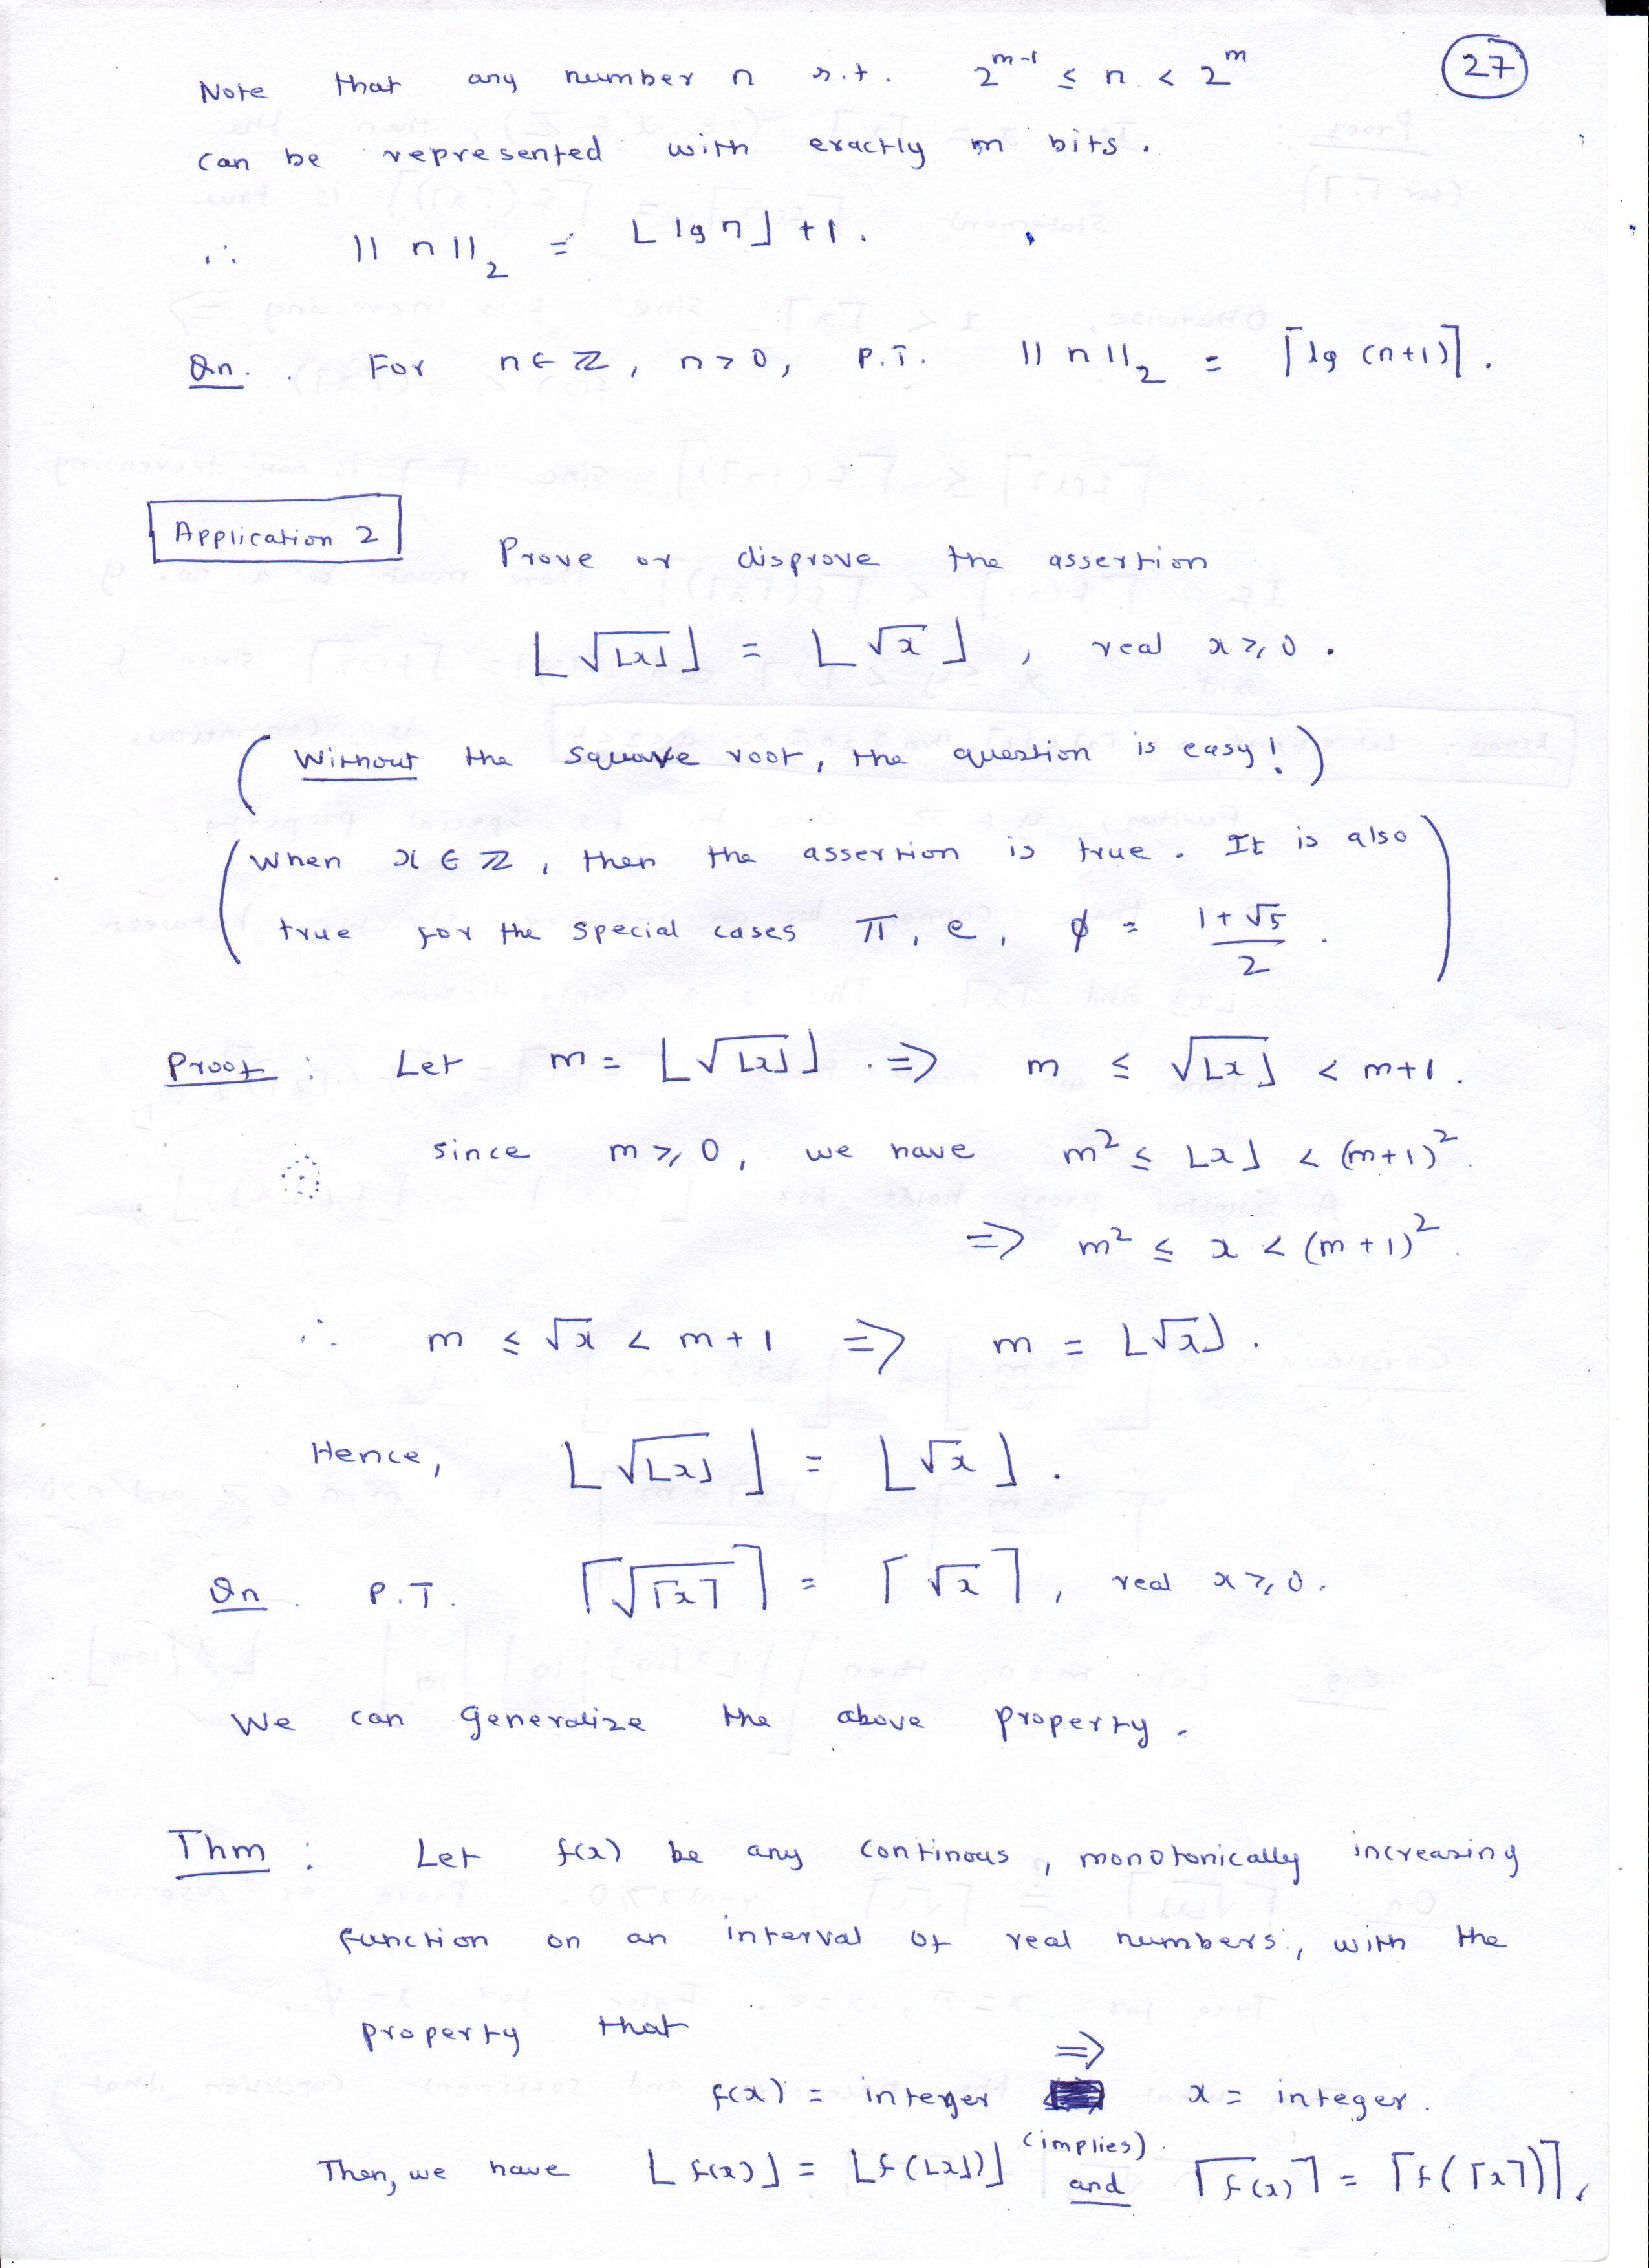 27
Note that any number n s.t. 2^{m-1} ≤ n < 2^m
can be represented with exactly m bits.
∴ ||n||₂ = ⌊lg n⌋ + 1.
Qn. For n ∈ ℤ, n > 0, P.T. ||n||₂ = ⌈lg (n+1)⌉.
Application 2
Prove or disprove the assertion
⌊√⌊x⌋⌋ = ⌊√x⌋, real x ≥ 0.
(Without the square root, the question is easy!)
(When x ∈ ℤ, then the assertion is true. It is also
true for the special cases π, e, φ = (1+√5)/2.)
Proof: Let m = ⌊√⌊x⌋⌋. ⇒ m ≤ √⌊x⌋ < m+1.
since m ≥ 0, we have m² ≤ ⌊x⌋ < (m+1)².
⇒ m² ≤ x < (m+1)².
∴ m ≤ √x < m+1 ⇒ m = ⌊√x⌋.
Hence, ⌊√⌊x⌋⌋ = ⌊√x⌋.
Qn. P.T. ⌈√⌈x⌉⌉ = ⌈√x⌉, real x ≥ 0.
We can generalize the above property.
Thm: Let f(x) be any continous, monotonically increasing
function on an interval of real numbers, with the
property that
f(x) = integer ⇒ x = integer.
(implies).
Then, we have ⌊f(x)⌋ = ⌊f(⌊x⌋)⌋ and ⌈f(x)⌉ = ⌈f(⌈x⌉)⌉,